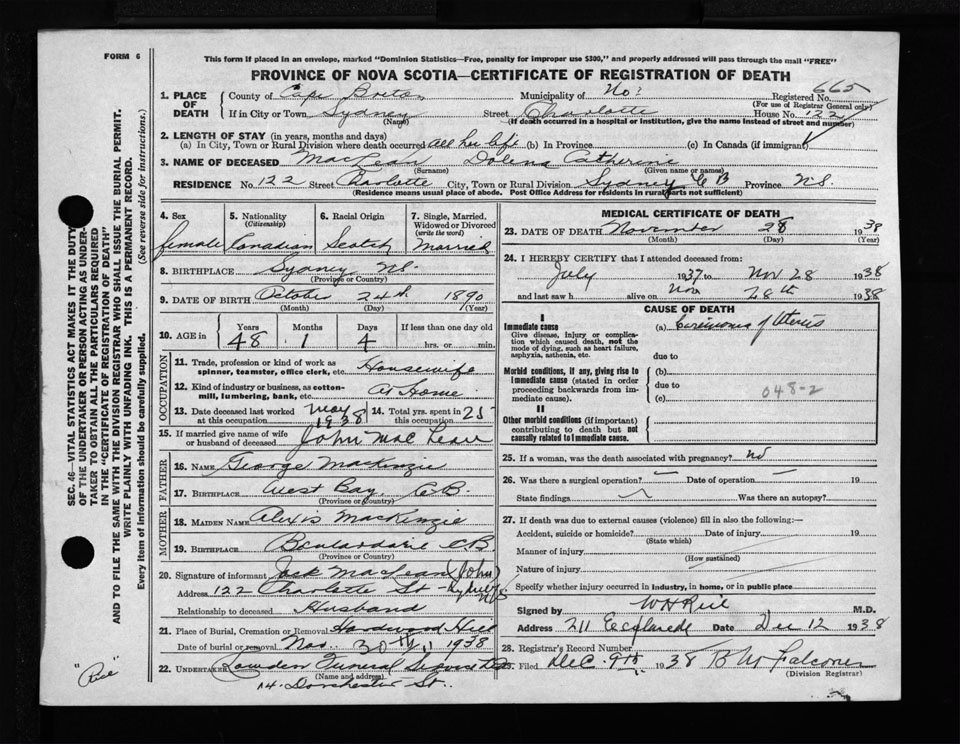 FORM 6
This form if placed in an envelope, marked "Dominion Statistics—Free, penalty for improper use $300," and properly addressed will pass through the mail "FREE"
PROVINCE OF NOVA SCOTIA—CERTIFICATE OF REGISTRATION OF DEATH
1. PLACE OF DEATH
County of Cape Breton Municipality of No: Registered No. 665
(For use of Registrar General only)
If in City or Town Sydney Street Charlotte House No. 122
(Name) (If death occurred in a hospital or institution, give the name instead of street and number)
2. LENGTH OF STAY (in years, months and days)
(a) In City, Town or Rural Division where death occurred all her life (b) In Province (c) In Canada (if immigrant)
3. NAME OF DECEASED MacLean Dolena Catherine
(Surname) (Given name or names)
RESIDENCE No. 122 Street Charlotte City, Town or Rural Division Sydney C B Province N.S.
(Residence means usual place of abode. Post Office Address for residents in rural parts not sufficient)
4. Sex female
5. Nationality (Citizenship) Canadian
6. Racial Origin Scotch
7. Single, Married, Widowed or Divorced (write the word) Married
8. BIRTHPLACE Sydney N.S.
(Province or Country)
9. DATE OF BIRTH October 24th 1890
(Month) (Day) (Year)
10. AGE in Years 48 Months 1 Days 4 If less than one day old hrs. or min.
OCCUPATION
11. Trade, profession or kind of work as spinner, teamster, office clerk, etc. Housewife
12. Kind of industry or business, as cotton-mill, lumbering, bank, etc. At Home
13. Date deceased last worked at this occupation May 1938
14. Total yrs. spent in this occupation 25
15. If married give name of wife or husband of deceased John MacLean
FATHER
16. NAME George MacKenzie
17. BIRTHPLACE West Bay, C.B.
(Province or Country)
MOTHER
18. MAIDEN NAME Alexis MacKenzie
19. BIRTHPLACE Boulardarie C.B.
(Province or Country)
20. Signature of informant Jack MacLean (John)
Address 122 Charlotte St - Sydney N S
Relationship to deceased Husband
21. Place of Burial, Cremation or Removal Hardwood Hill
Date of burial or removal Nov. 30th 1938
22. UNDERTAKER Lowden Funeral
(Name and address)
Dorchester St.
MEDICAL CERTIFICATE OF DEATH
23. DATE OF DEATH November 28 1938
(Month) (Day) (Year)
24. I HEREBY CERTIFY that I attended deceased from:
July 1937 to Nov 28 1938
and last saw h alive on Nov 28th 1938
CAUSE OF DEATH
I
Immediate cause
Give disease, injury or complication which caused death, not the mode of dying, such as heart failure, asphyxia, asthenia, etc.
(a) Carcinoma of Uterus
due to
Morbid conditions, if any, giving rise to immediate cause (stated in order proceeding backwards from immediate cause).
(b)
due to
(c)
048-2
II
Other morbid conditions (if important) contributing to death but not causally related to immediate cause.
25. If a woman, was the death associated with pregnancy? no
26. Was there a surgical operation? — Date of operation — 19
State findings Was there an autopsy?
27. If death was due to external causes (violence) fill in also the following:—
Accident, suicide or homicide? Date 19
(State which)
Manner of injury
(How sustained)
Nature of injury
Specify whether injury occurred in industry, in home, or in public place
Signed by M.D.
Address 211 Esplanade Date Dec 12 1938
28. Registrar's Record Number
29. Filed Dec. 9th 1938 B W Falconer
(Division Registrar)
SEC. 46—VITAL STATISTICS ACT MAKES IT THE DUTY OF THE UNDERTAKER OR PERSON ACTING AS UNDERTAKER TO OBTAIN ALL THE PARTICULARS REQUIRED IN THE "CERTIFICATE OF DEATH"
AND TO FILE THE SAME WITH THE DIVISION REGISTRAR WHO SHALL ISSUE THE BURIAL PERMIT.
WRITE PLAINLY WITH UNFADING INK. THIS IS A PERMANENT RECORD.
Every item of information should be carefully supplied. (See reverse side for instructions.)